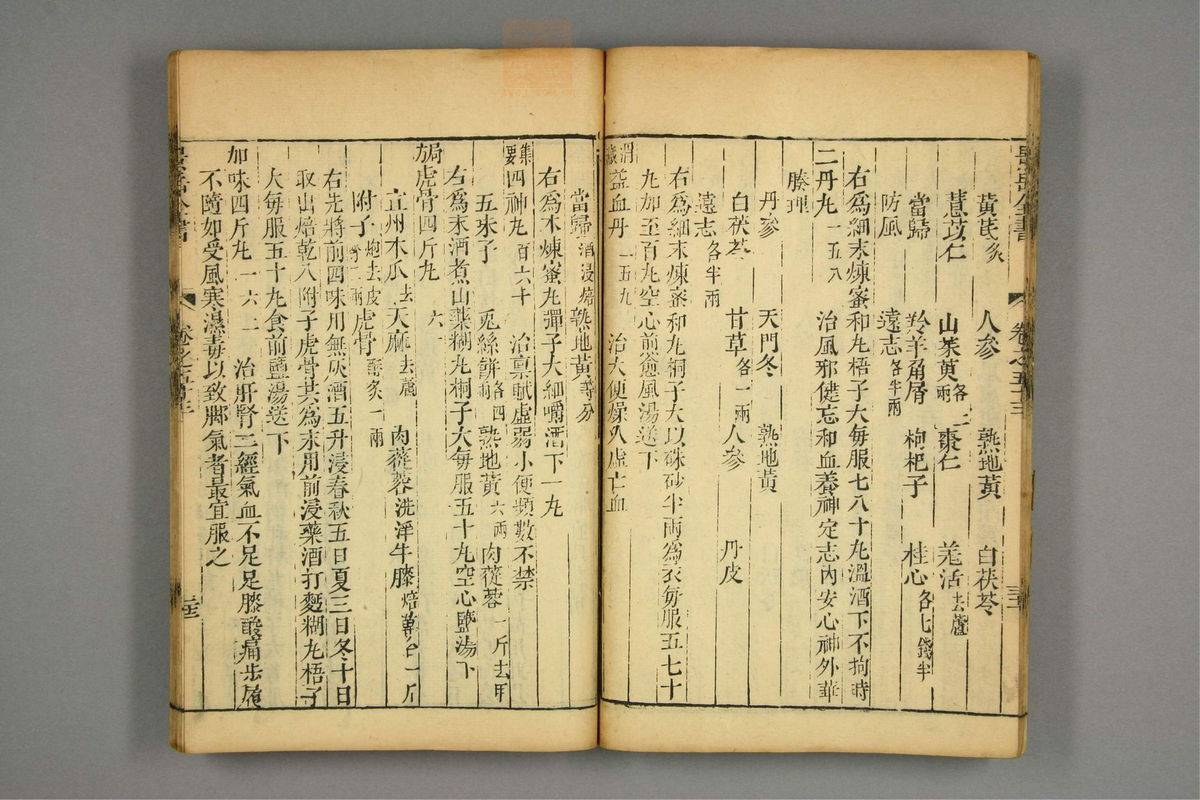 景岳全書 卷之五十三
黃芪炙 人參 熟地黃 白茯苓
薏苡仁 山茱萸各一兩 棗仁 羌活去蘆
當歸 羚羊角屑 枸杞子 桂心各七錢半
防風 遠志各半兩
右爲細末煉蜜和丸梧子大每服七八十丸溫酒下不拘時
二丹丸一五八 治風邪健忘和血養神定志內安心神外華
腠理
丹參 天門冬 熟地黃
白茯苓 甘草各一兩 人參 丹皮
遠志各半兩
右爲細末煉蜜和丸桐子大以硃砂半兩爲衣每服五七十
丸加至百丸空心前愈風湯送下
益血丹一五九 治大便燥久虛亡血
當歸酒浸焙 熟地黃等分
右爲末煉蜜丸彈子大細嚼酒下一丸
集要四神丸百六十 治稟賦虛弱小便頻數不禁
五味子 兎絲餅各四兩 熟地黃六兩 肉蓯蓉一斤去甲
右爲末酒煮山藥糊丸桐子大每服五十丸空心鹽湯下
局方虎骨四斤丸六一
宣州木瓜去 天麻去蘆 肉蓯蓉洗淨 牛膝焙乾各一斤
附子炮去皮 兩 虎骨酥炙一兩
右先將前四味用無灰酒五升浸春秋五日夏三日冬十日
取出焙乾入附子虎骨共爲末用前浸藥酒打麪糊丸梧子
大每服五十丸食前鹽湯送下
加味四斤丸一六二 治肝腎二經氣血不足足膝酸痛步履
不隨如受風寒濕毒以致脚氣者最宜服之
景岳全書 卷之五十三